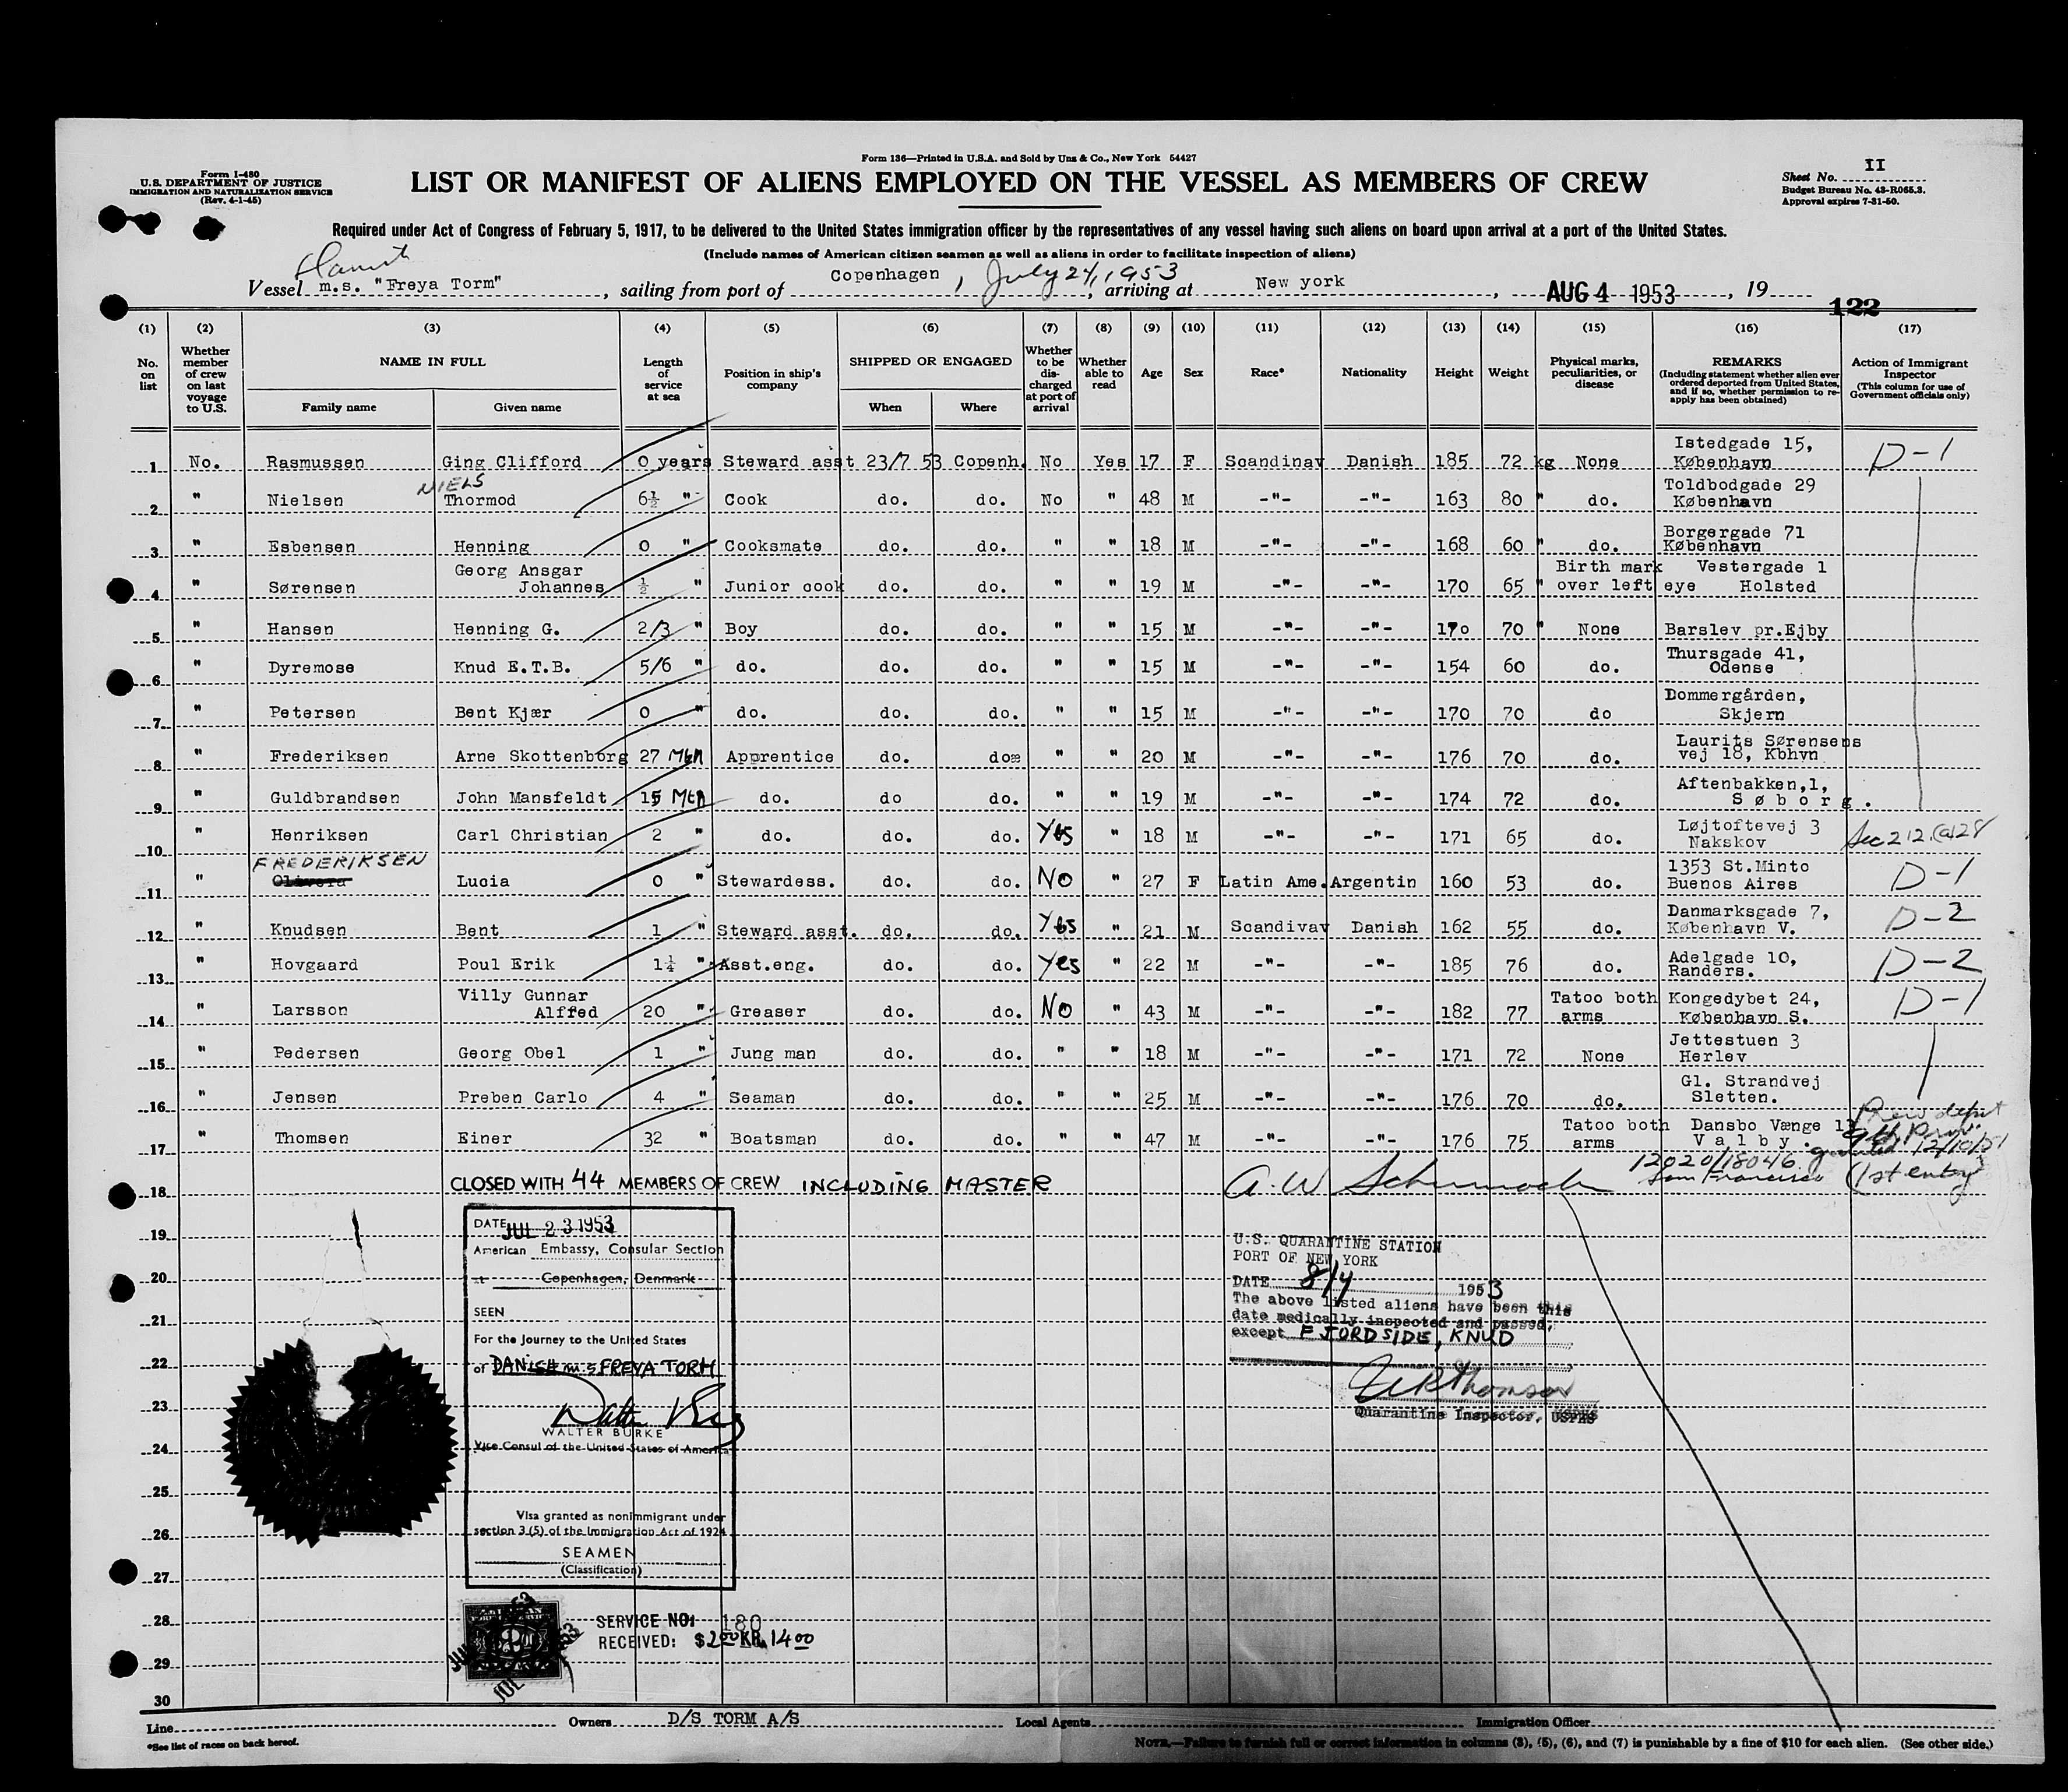 Form 136—Printed in U.S.A. and Sold by Unz & Co., New York 54427
Form I-480
U. S. DEPARTMENT OF JUSTICE
IMMIGRATION AND NATURALIZATION SERVICE
(Rev. 4-1-45)
LIST OR MANIFEST OF ALIENS EMPLOYED ON THE VESSEL AS MEMBERS OF CREW
Sheet No. II
Budget Bureau No. 43-R065.3.
Approval expires 7-31-50.
Required under Act of Congress of February 5, 1917, to be delivered to the United States immigration officer by the representatives of any vessel having such aliens on board upon arrival at a port of the United States.
(Include names of American citizen seamen as well as aliens in order to facilitate inspection of aliens)
Vessel m.s. "Freya Torm", sailing from port of Copenhagen, July 24, 1953, arriving at New york, AUG 4 1953, 19
122
(1) (2) (3) (4) (5) (6) (7) (8) (9) (10) (11) (12) (13) (14) (15) (16) (17)
No. on list
Whether member of crew on last voyage to U.S.
NAME IN FULL
Family name Given name
Length of service at sea
Position in ship's company
SHIPPED OR ENGAGED
When Where
Whether to be discharged at port of arrival
Whether able to read
Age Sex Race* Nationality Height Weight
Physical marks, peculiarities, or disease
REMARKS
(Including statement whether alien ever ordered deported from United States, and if so, whether permission to re-apply has been obtained)
Action of Immigrant Inspector
(This column for use of Government officials only)
1 No. Rasmussen Ging Clifford 0 years Steward asst 23/7 53 Copenh. No Yes 17 F Scandinav Danish 185 72 kg None Istedgade 15, København D-1
2 " Nielsen NIELS Thormod 6½ " Cook do. do. No " 48 M -"- -"- 163 80 " do. Toldbodgade 29 København
3 " Esbensen Henning 0 " Cooksmate do. do. " " 18 M -"- -"- 168 60 " do. Borgergade 71 København
4 " Sørensen Georg Ansgar Johannes ½ " Junior cook do. do. " " 19 M -"- -"- 170 65 " Birth mark over left eye Vestergade 1 Holsted
5 " Hansen Henning G. 2/3 " Boy do. do. " " 15 M -"- -"- 170 70 " None Barslev pr.Ejby
6 " Dyremose Knud E.T.B. 5/6 " do. do. do. " " 15 M -"- -"- 154 60 do. Thursgade 41, Odense
7 " Petersen Bent Kjær 0 " do. do. do. " " 15 M -"- -"- 170 70 do Dommergården, Skjern
8 " Frederiksen Arne Skottenborg 27 Mtn Apprentice do. do " " 20 M -"- -"- 176 70 do. Laurits Sørensens vej 18, Kbhvn
9 " Guldbrandsen John Mansfeldt 15 Mtn do. do do. " " 19 M -"- -"- 174 72 do. Aftenbakken,1, S ø b o r g .
10 " Henriksen Carl Christian 2 " do. do. do. Yes " 18 M -"- -"- 171 65 do. Løjtoftevej 3 Nakskov Sec 212.(a)28
11 " FREDERIKSEN Olivera Lucia 0 " Stewardess. do. do. No " 27 F Latin Ame. Argentin 160 53 do. 1353 St.Minto Buenos Aires D-1
12 " Knudsen Bent 1 " Steward asst. do. do. Yes " 21 M Scandivav Danish 162 55 do. Danmarksgade 7, København V. D-2
13 " Hovgaard Poul Erik 1¼ " Asst.eng. do. do. Yes " 22 M -"- -"- 185 76 do. Adelgade 10, Randers. D-2
14 " Larsson Villy Gunnar Alfred 20 " Greaser do. do. No " 43 M -"- -"- 182 77 Tatoo both arms Kongedybet 24, København S. D-1
15 " Pedersen Georg Obel 1 " Jung man do. do. " " 18 M -"- -"- 171 72 None Jettestuen 3 Herlev
16 " Jensen Preben Carlo 4 " Seaman do. do. " " 25 M -"- -"- 176 70 do. Gl. Strandvej Sletten.
17 " Thomsen Einer 32 " Boatsman do. do. " " 47 M -"- -"- 176 75 Tatoo both arms Dansbo Vænge 1 V a l b y .
Prev deport
granted 12/10/51
12020/18046
San Francisco (1st entry
18 CLOSED WITH 44 MEMBERS OF CREW INCLUDING MASTER
19
20
21
22
23
24
25
26
27
28
29
30
DATE JUL 23 1953
American Embassy, Consular Section
at Copenhagen, Denmark
SEEN
For the Journey to the United States
of DANISH m.s FREYA TORM
WALTER BURKE
Vice Consul of the United States of America
Visa granted as nonimmigrant under
section 3 (5) of the Immigration Act of 1924
SEAMEN
(Classification)
SERVICE NO: 180
RECEIVED: $2.00 KR. 14 00
U.S. QUARANTINE STATION
PORT OF NEW YORK
DATE 8/4 1953
The above listed aliens have been this
date medically inspected and passed,
except FJORDSIDE, KNUD
Quarantine Inspector, USPHS
Line Owners D/S TORM A/S Local Agents Immigration Officer
*See list of races on back hereof.
NOTE.—Failure to furnish full or correct information in columns (3), (5), (6), and (7) is punishable by a fine of $10 for each alien. (See other side.)